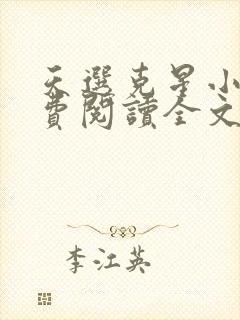 天選克星小
費閱讀全文
李江英